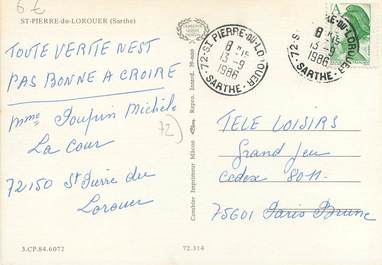 6 €
ST-PIERRE-du-LOROUER (Sarthe)
TOUTE VERITE NEST
PAS BONNE A CROIRE
Mme Poupin Michèle
La Cour
72150 St Pierre du
Lorouer
72
3.CP.84.6072
72.314
Combier Imprimeur Mâcon
Repro. Interd.
72-ST PIERRE-DU-LOROUER
13-9
1986
SARTHE
72-ST PIERRE-DU-LOROUER
13-9
1986
SARTHE
A
TELE LOISIRS
Grand Jeu
Cedex 8011
75601 Paris Brune